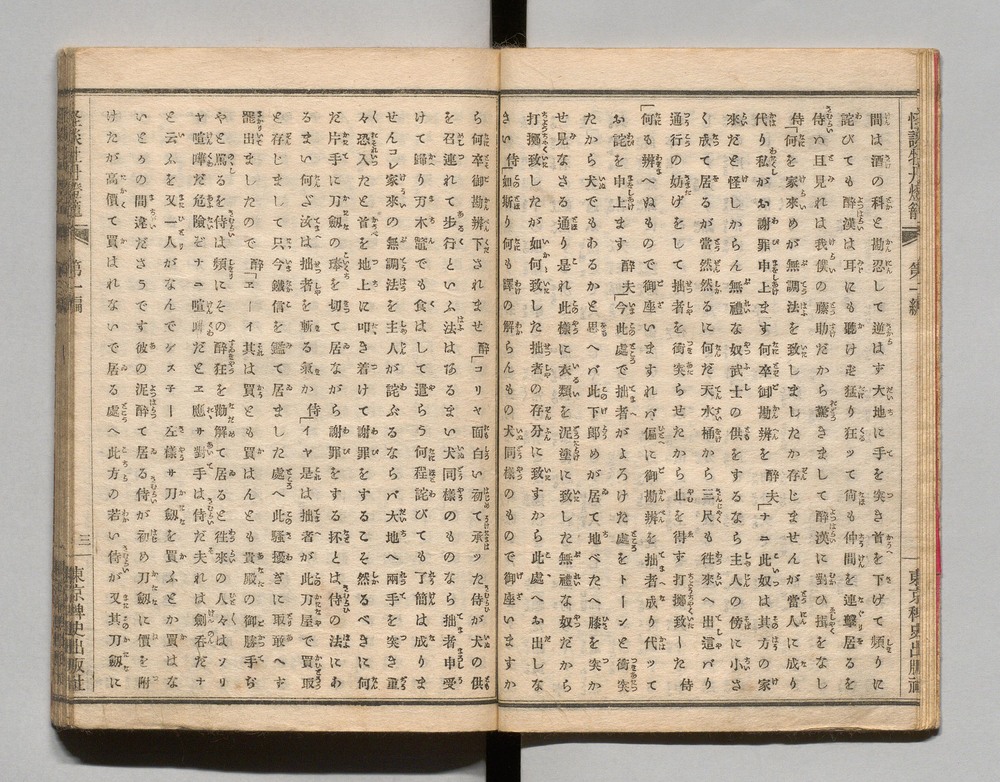 怪談牡丹燈籠 第一編 東京稗史出版社
間は酒の科と勘忍して逆はす大地に手を突き首を下げて頻りに
詫びても酔漢は耳にも聴けず猛り狂ッて尚も仲間を連撃居るを
侍ハ旦見れは我僕の藤助だから驚きまして酔漢に對ひ揖をなし
侍「何を家來めが無調法を致しましたか存じませんが當人に成り
代り私がお謝罪申上ます何卒御勘辨を 酔夫「ナニ此奴は其方の家
來だと怪しからん無禮な奴武士の供をするなら主人の傍に小さ
く成て居るが當然然るに何だ天水桶から三尺も徃來へ出這バり
通行の妨げをして拙者を衝突らせたから止を得す打擲致した 侍
「何も辨へぬもので御座いますれバ偏に御勘辨を拙者成り代ッて
お詫を申上ます 酔夫「今此處で拙者がよろけた處をトーンと衝突
たから犬でもあるかと思へバ此下郎めが居て地べたへ膝を突か
せ見なさる通り是れ此様に衣類を泥塗に致した無禮な奴だから
打擲致したが如何致した拙者の存分に致すから此處へお出しな
さい 侍「如斯り何も譯の解らんもの犬同様のもので御座いますか
ら何卒御勘辨下されませ 酔「コリャ面白い初て承ッた侍が犬の供
を召連れて歩行といふ法はあるまい犬同様のものなら拙者申受
けて歸り万木鼈でも食はして遣らう何程詫びても了簡は成りま
せんコレ家來の無調法を主人が詫ぶるならバ大地へ兩手を突き重
々恐入たと首を地上に叩き着けて謝罪をするこそ然るべきに何
だ片手に刀劔の鯉口を切て居ながら謝罪をする抔とは侍の法にあ
るまい何だ汝は拙者を斬る氣か 侍「イヤ是は拙者が此刀屋で買取
と存じまして只今鐵信を鑑て居ました處へ此騒擾ぎに取敢へす
罷出ましたので 酔「エーイ其は買とも買はんとも貴殿の御勝手ぢ
やと罵るを侍は頻にその酔狂を勸解て居ると徃來の人々はソリ
ャ喧嘩だ危險ぞナニ喧嘩だとヱ應サ對手は侍だ夫れは劍呑だナ
と云ふを又一人がなんでゲスネー左様サ刀劔を買ふとか買はな
いとかの間違ださうです彼の泥酔て居る侍が初め刀劔に價を附
けたが高價て買はれないで居る處へ此方の若い侍が又其刀劔に
怪談牡丹燈籠 第一編 三 東京稗史出版社